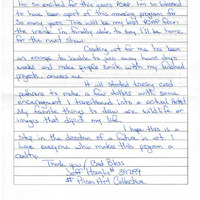 I'm so excited for this years ASAP. I'm so blessed
to have been apart of this amazing program for
so many years. This will be my last ASAP from
the inside. I'm finally able to say I'll be home
for the next show.
Creating art for me has been
an escape to
and make people smile with my finished
projects, amazes me.
It all started tracing card
patterns to make a few dollars with some
encouragement I transitioned into a actual Artist!
My favorite things to draw are wildlife or
images that depict my life.
I hope this is a
step in the direction of a future in art I
hope everyone who makes this program a
reality.
Thank you / God Bless
Jeff
at Prison Art Collective